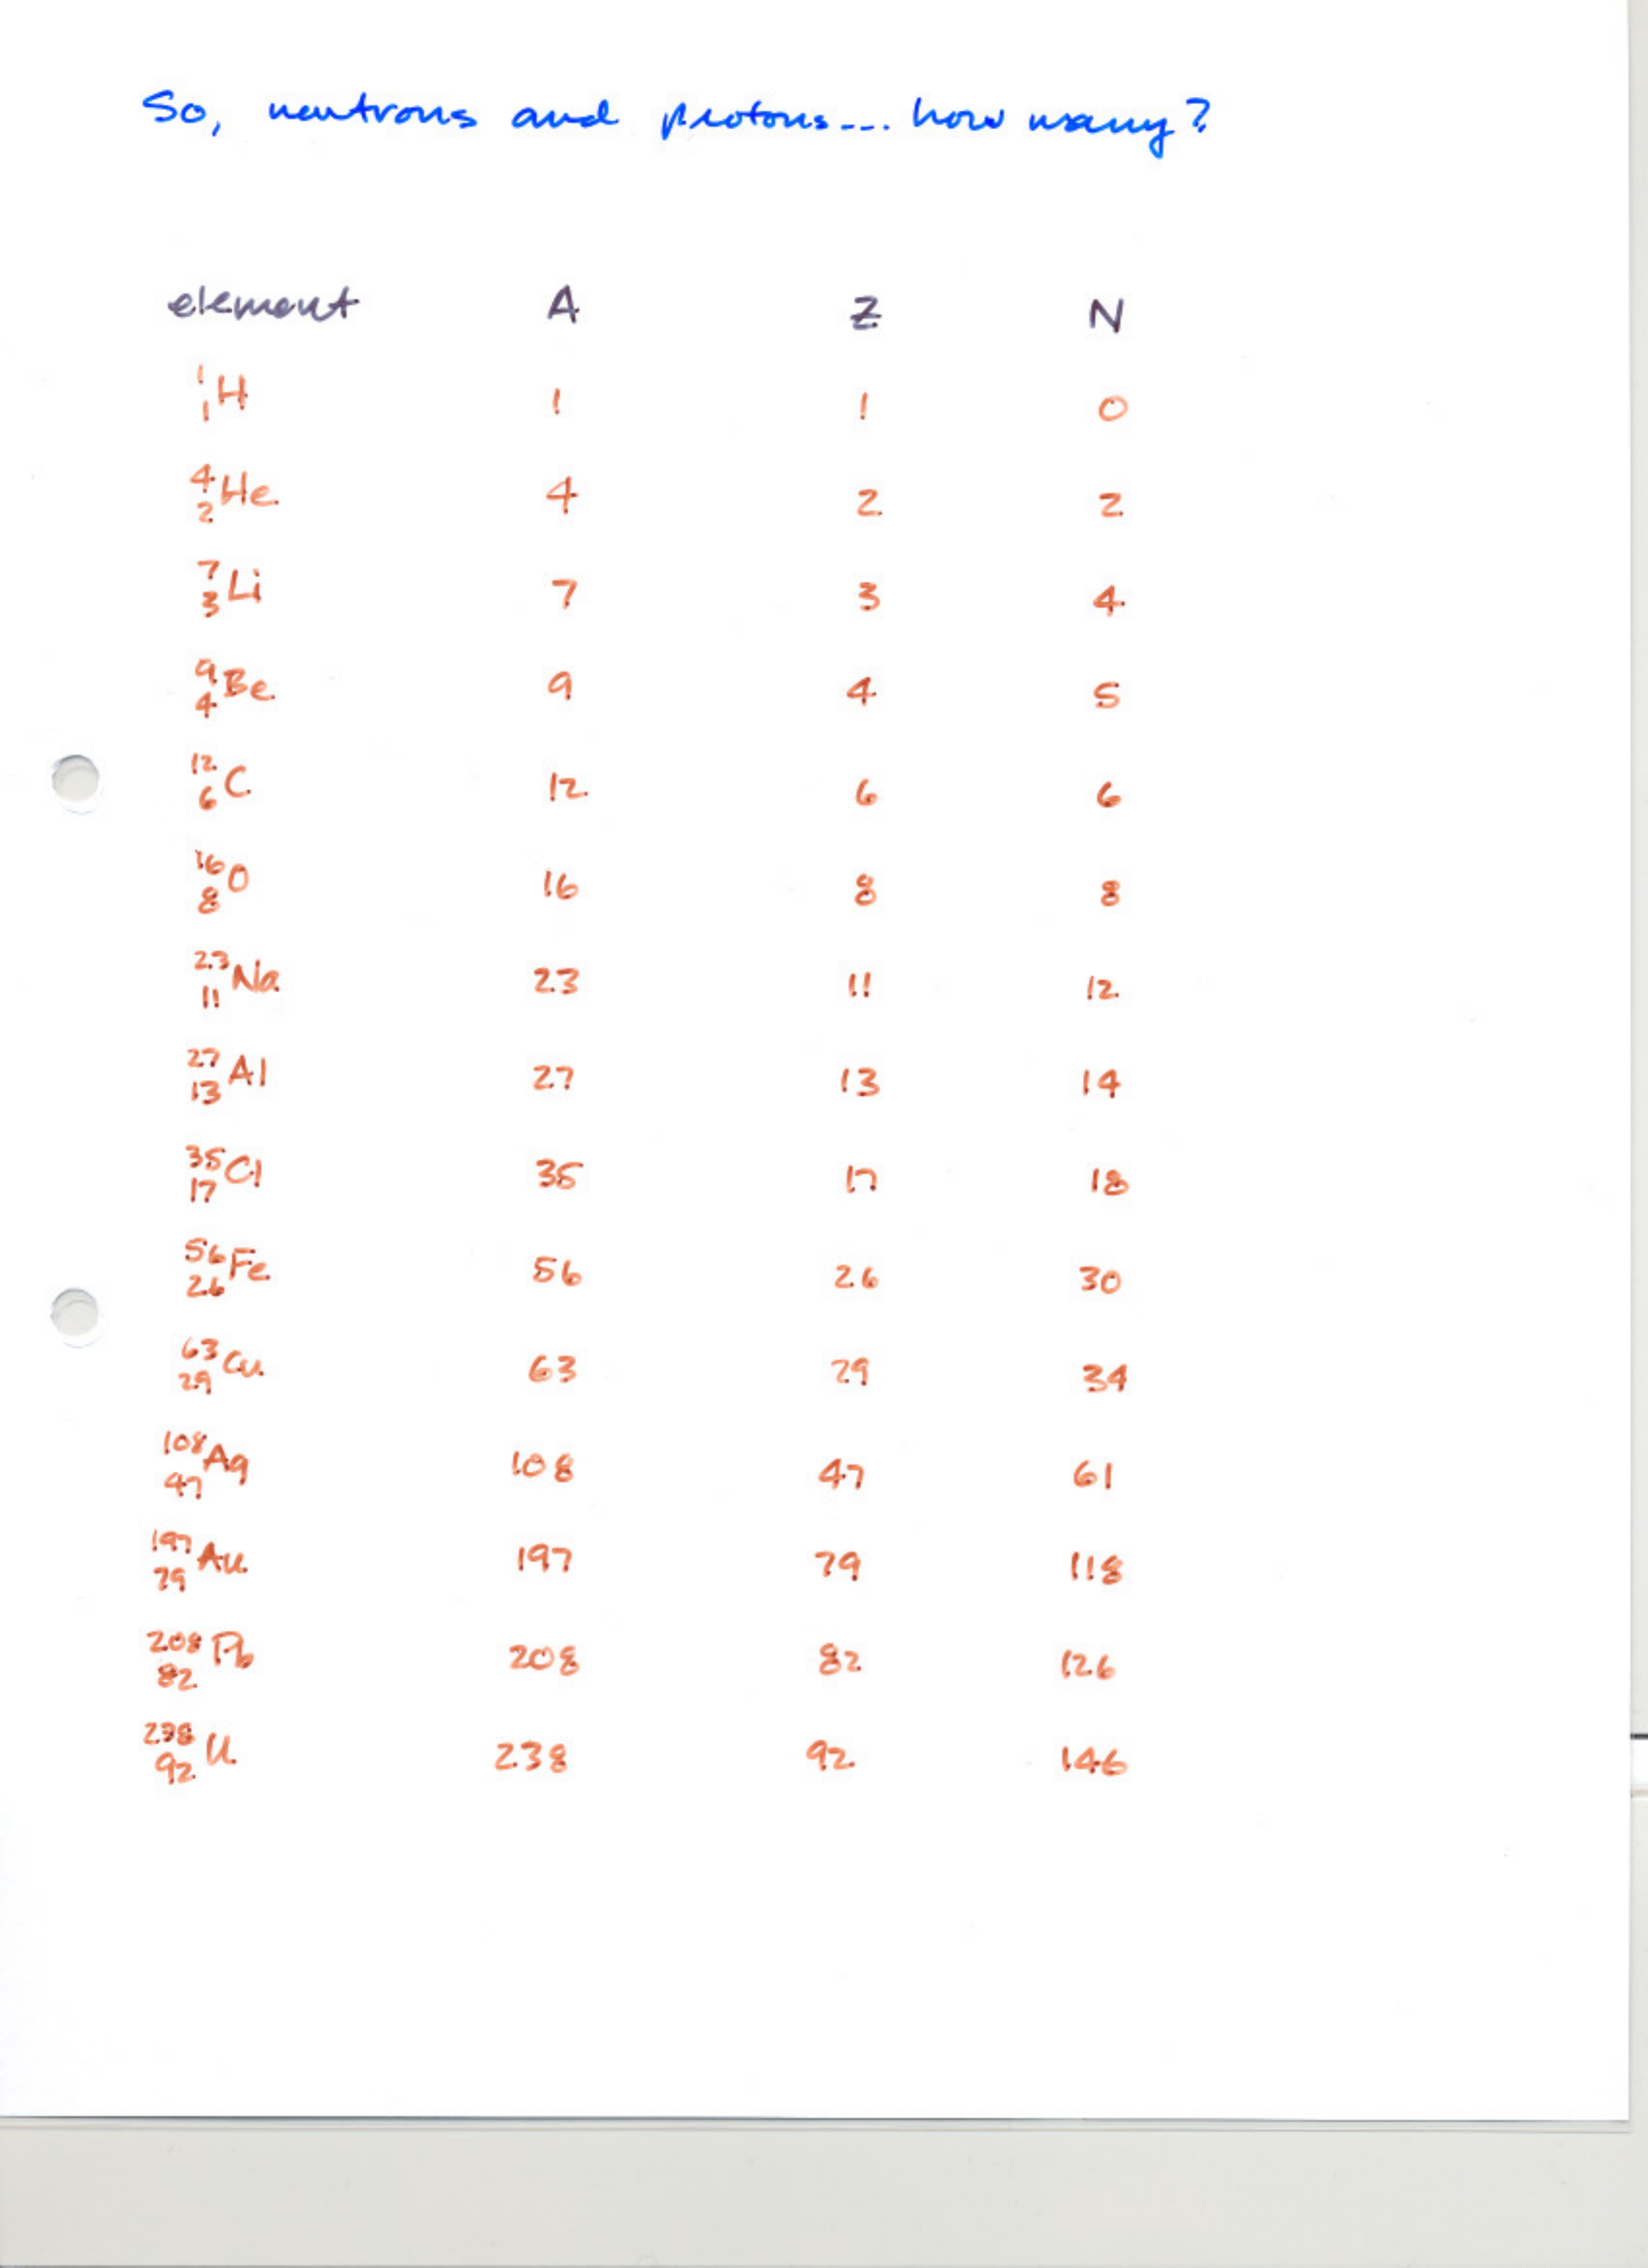 So, neutrons and protons... how many?
element A Z N
¹₁H 1 1 0
⁴₂He 4 2 2
⁷₃Li 7 3 4
⁹₄Be 9 4 5
¹²₆C 12 6 6
¹⁶₈O 16 8 8
²³₁₁Na 23 11 12
²⁷₁₃Al 27 13 14
³⁵₁₇Cl 35 17 18
⁵⁶₂₆Fe 56 26 30
⁶³₂₉Cu 63 29 34
¹⁰⁸₄₇Ag 108 47 61
¹⁹⁷₇₉Au 197 79 118
²⁰⁸₈₂Pb 208 82 126
²³⁸₉₂U 238 92 146